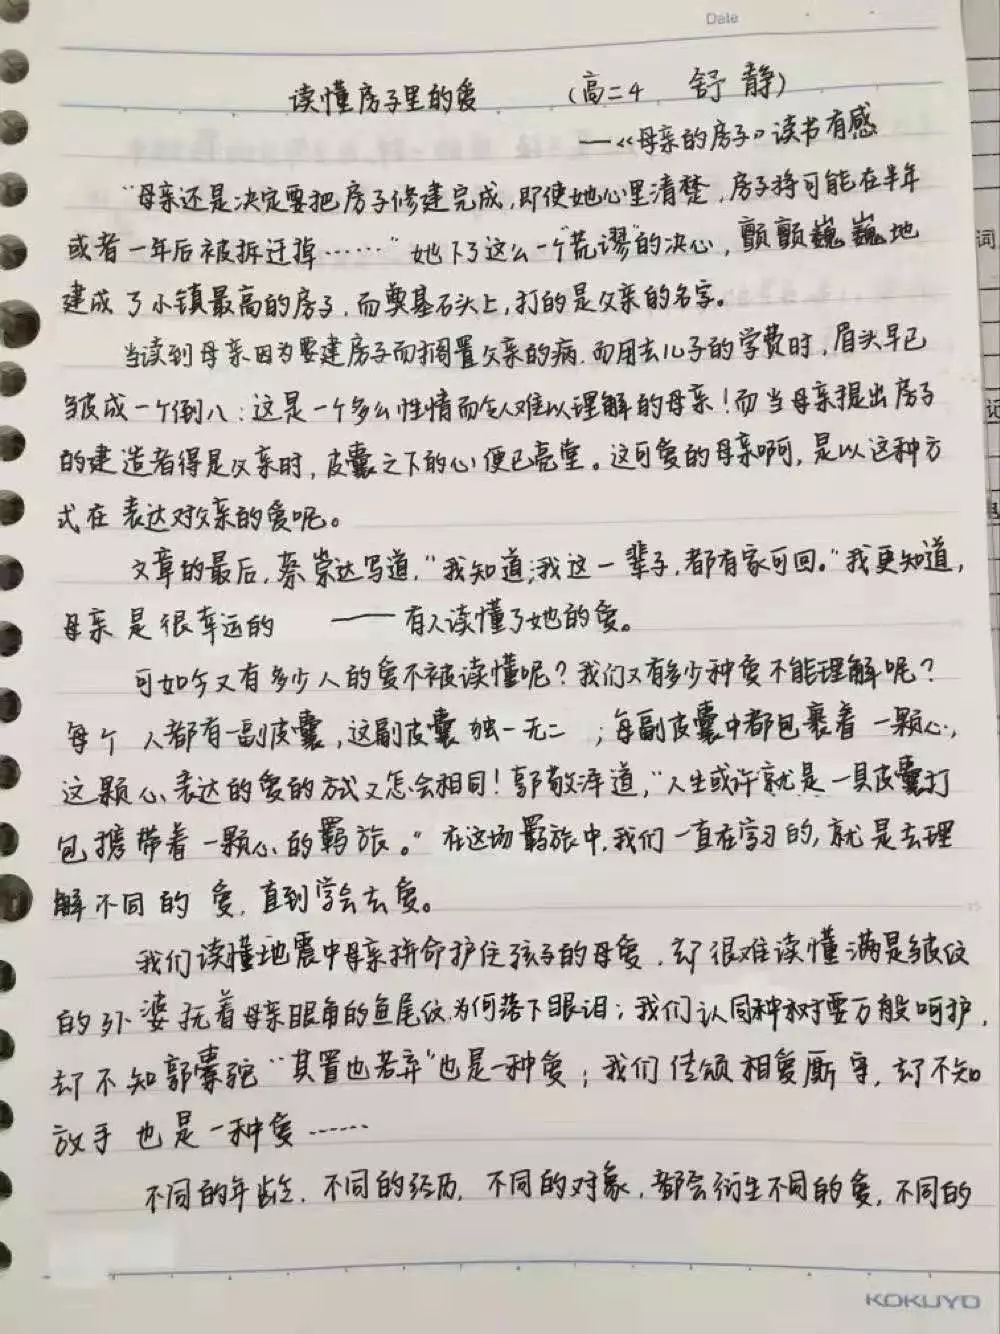 Date
读懂房子里的爱 （高二4 舒静）
——《母亲的房子》读书有感
“母亲还是决定要把房子修建完成，即使她心里清楚，房子将可能在半年
或者一年后被拆迁掉……”她下了这么一个“荒谬”的决心，颤颤巍巍地
建成了小镇最高的房子，而奠基石头上，打的是父亲的名字。
当读到母亲因为要建房子而搁置父亲的病，而用去儿子的学费时，眉头早已
皱成一个倒八：这是一个多么性情而令人难以理解的母亲！而当母亲提出房子
的建造者得是父亲时，皮囊之下的心便已亮堂。这可爱的母亲啊，是以这种方
式在表达对父亲的爱呢。
文章的最后，蔡崇达写道，“我知道，我这一辈子，都有家可回。”我更知道，
母亲是很幸运的 ——有人读懂了她的爱。
可如今又有多少人的爱不被读懂呢？我们又有多少种爱不能理解呢？
每个人都有一副皮囊，这副皮囊独一无二；每副皮囊中都包裹着一颗心，
这颗心表达的爱的方式又怎会相同！郭敬泽道，“人生或许就是一具皮囊打
包携带着一颗心的羁旅。”在这场羁旅中，我们一直在学习的，就是去理
解不同的爱，直到学会去爱。
我们读懂地震中母亲拼命护住孩子的母爱，却很难读懂满是皱纹
的外婆抚着母亲眼角的鱼尾纹为何落下眼泪；我们认同种树要万般呵护，
却不知郭橐驼“其置也若弃”也是一种爱；我们传颂相爱厮守，却不知
放手也是一种爱……
不同的年龄，不同的经历，不同的对象，都会衍生不同的爱，不同的
KOKUYO
词